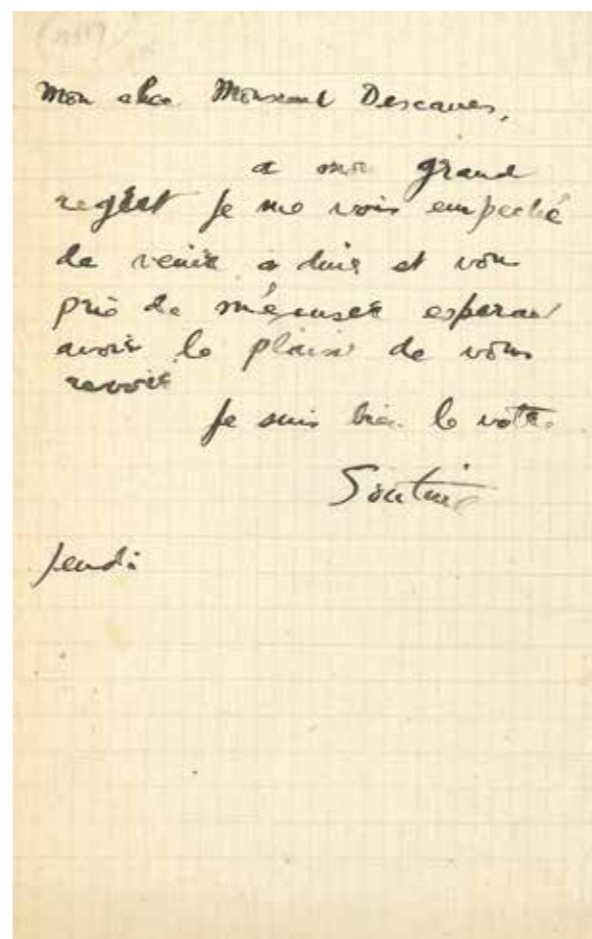 Mon cher Monsieur Descaves,
a mon grand
regret je me vois empeché
de venir a diné et vous
prie de m'écuser esperan
avoir le plaisi de vous
revoir
je suis bien le votre
Soutine
jeudi